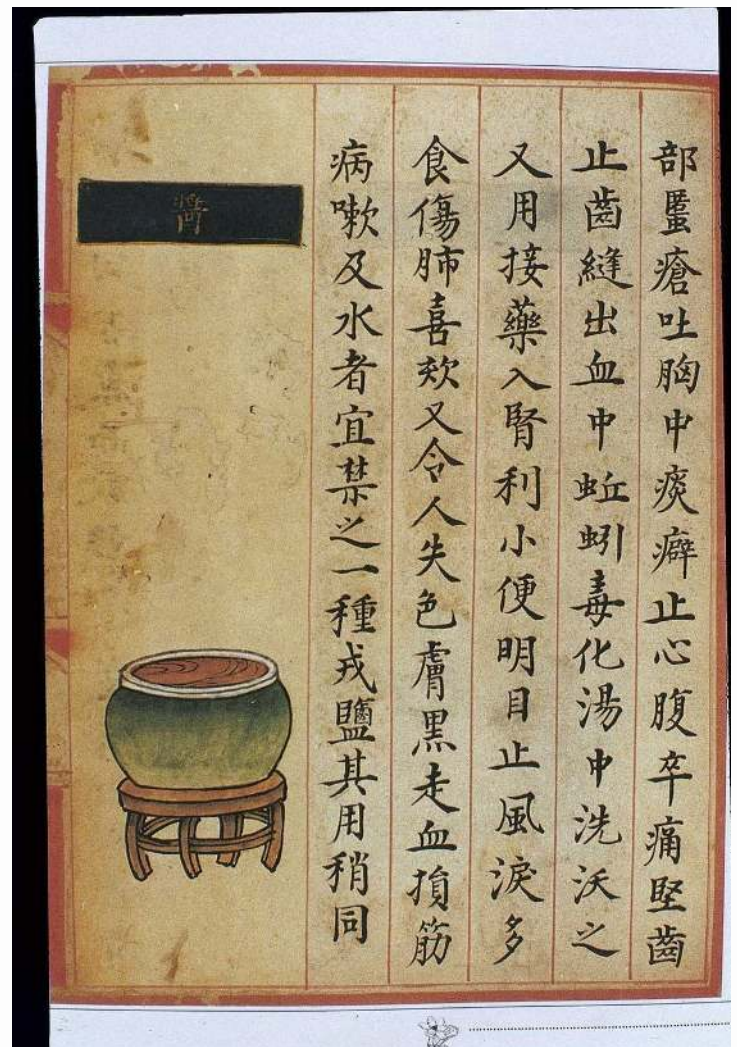 部䘌瘡吐胸中痰癖止心腹卒痛堅齒
止齒縫出血中蚯蚓毒化湯中洗沃之
又用接藥入腎利小便明目止風淚多
食傷肺喜欬又令人失色膚黒走血損筋
病嗽及水者宜禁之一種戎鹽其用稍同
醬